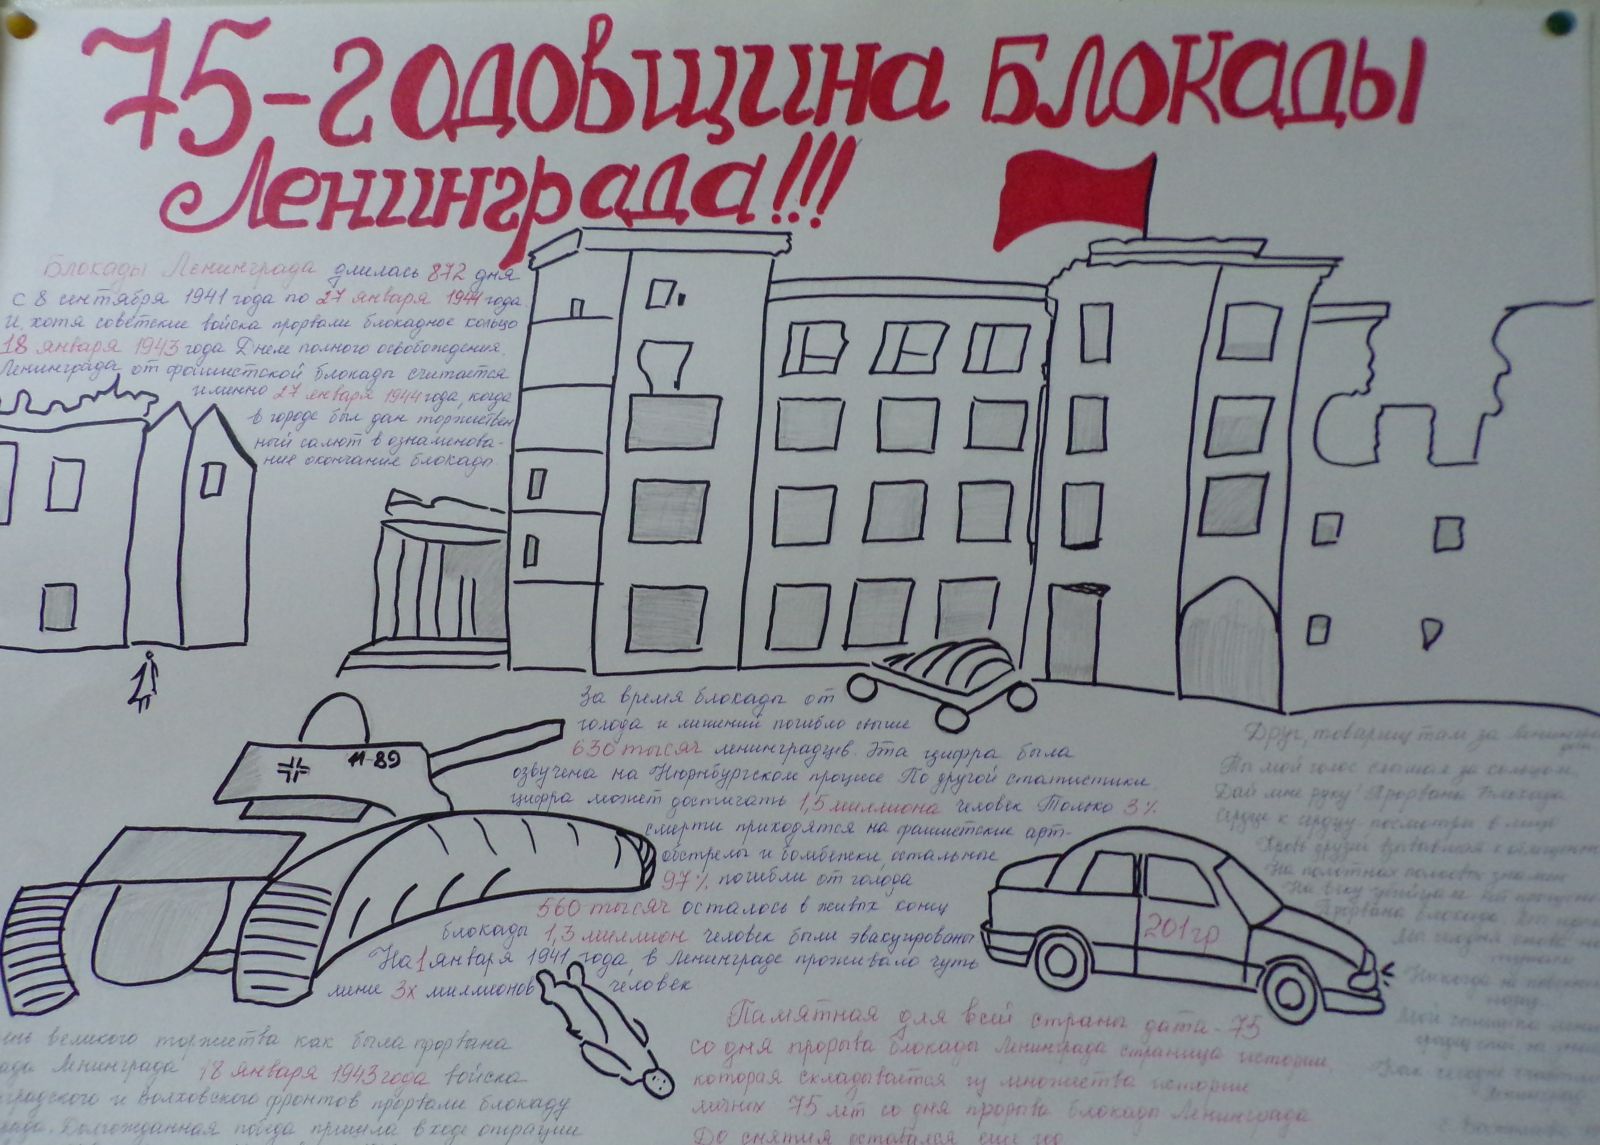 75-годовщина Блокады
Ленинграда!!!
Блокады Ленинграда длилась 872 дня
с 8 сентября 1941 года по 27 января 1944 года
И хотя советские войска прорвали блокадное кольцо
18 января 1943 года Днем полного освобождения
Ленинграда от фашистской блокады считается
именно 27 января 1944 года, когда
в городе был дан торжествен
ный салют в ознаменова-
ние окончание блокады.
За время блокады от
голода и лишений погибло свыше
630 тысяч ленинградцев. Эта цифра была
озвучена на Нюрнбургском процессе По другой статистики
цифра может достигать 1,5 миллиона человек Только 3%
смерти приходятся на фашистские арт-
обстрелы и бомбежки, остальные
97% погибли от голода
560 тысяч осталось в живых конец
блокады 1,3 миллион человек были эвакуированы
На 1 января 1941 года, в Ленинграде проживало чуть
мение 3х миллионов человек
Н-89
201гр
ень великого торжества как была прорвана
ада Ленинграда 18 января 1943 года войска
градского и Волховского фронтов прорвали блокаду
Долгожданная победа пришла в ходе операции
Памятная для всей страны дата - 75
со дня прорыва блокады Ленинграда страница истории,
которая складывается из множества истории
личных 75 лет со дня прорыва блокады Ленинграда
До снятия оставался еще год
Друг, товарищ там за
Ты мой голос слышал за кольцом,
Дай мне руку! Прорвана блокада
Сердце к сердцу - посмотри в лицо
На полотнах полковых знамен
Прорвана блокада.
Мы сегодня снова